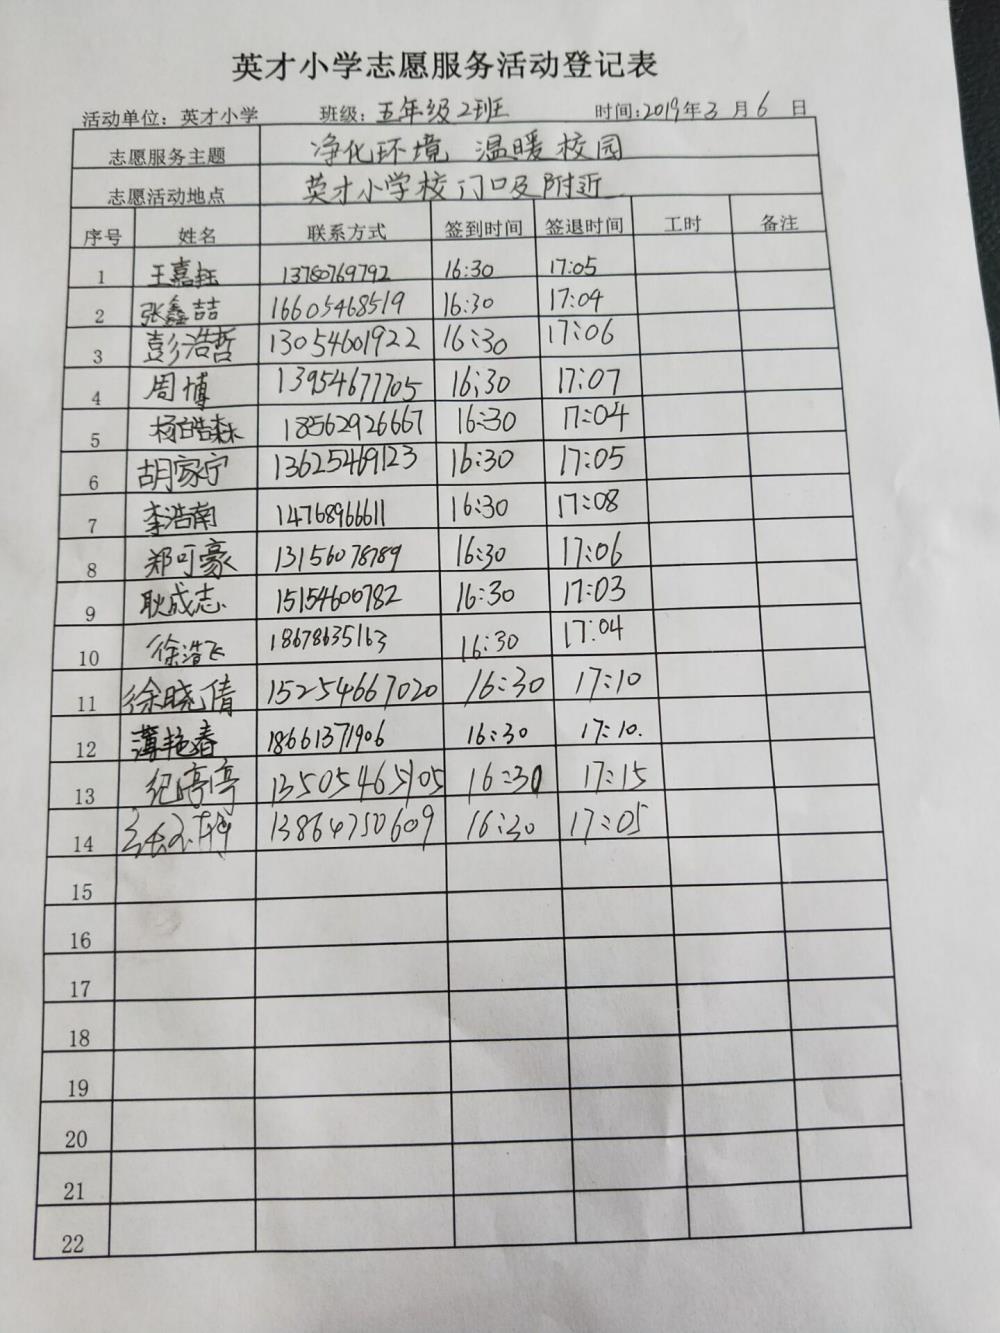 英才小学志愿服务活动登记表
活动单位：英才小学 班级：五年级2班 时间：2019年3月6日
志愿服务主题 净化环境 温暖校园
志愿活动地点 英才小学校门口及附近
序号 姓名 联系方式 签到时间 签退时间 工时 备注
1 王嘉钰 13780769792 16:30 17:05
2 张鑫喆 16605468519 16:30 17:04
3 彭浩哲 13054601922 16:30 17:06
4 周博 13954677705 16:30 17:07
5 杨皓森 18562926667 16:30 17:04
6 胡家宁 13625469123 16:30 17:05
7 李浩南 14768966611 16:30 17:08
8 郑可豪 13156078789 16:30 17:06
9 耿成志 15154600782 16:30 17:03
10 徐浩飞 18678635163 16:30 17:04
11 徐晓倩 15254667020 16:30 17:10
12 薄艳春 18661371906 16:30 17:10.
13 纪婷婷 13505465105 16:30 17:15
14 13864750609 16:30 17:05
15
16
17
18
19
20
21
22